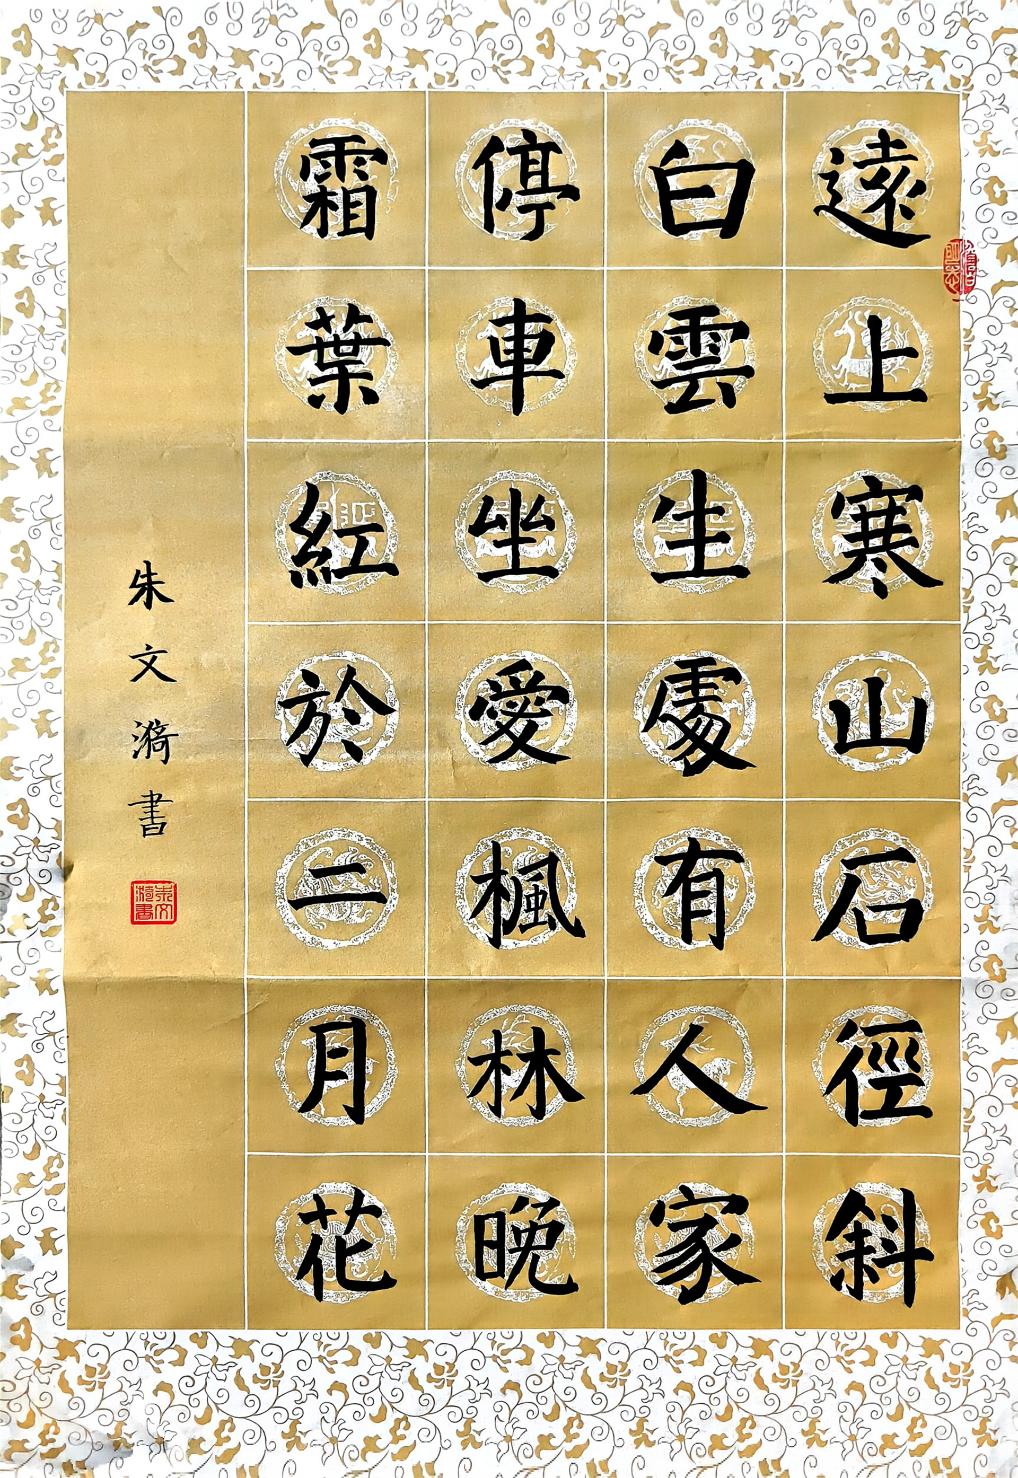 遠上寒山石徑斜
白雲生處有人家
停車坐愛楓林晚
霜葉紅於二月花
朱文漪書
朱文漪書